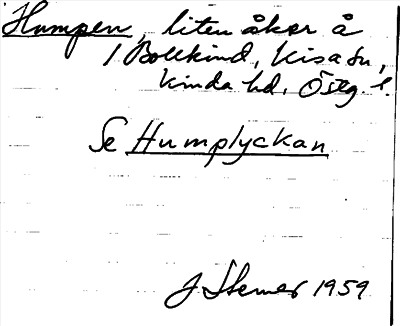 Humpen, liten åker å
1 Bollkind, Kisa sn,
Kinda hd, Östg. l.
Se Humplyckan
J Sterner 1959